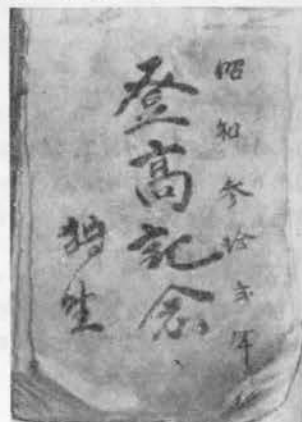 昭和参拾弐年
登高記念